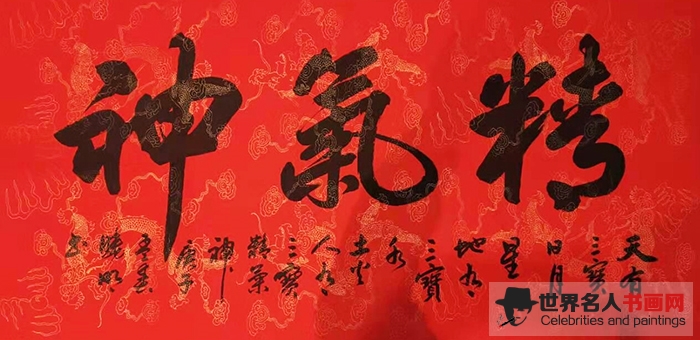 精氣神
天有
三寶
日月
星
地有
三寶
水
土火
人有
三寶
精氣
神
庚子
孟春
書
世界名人书画网
Celebrities and paintings